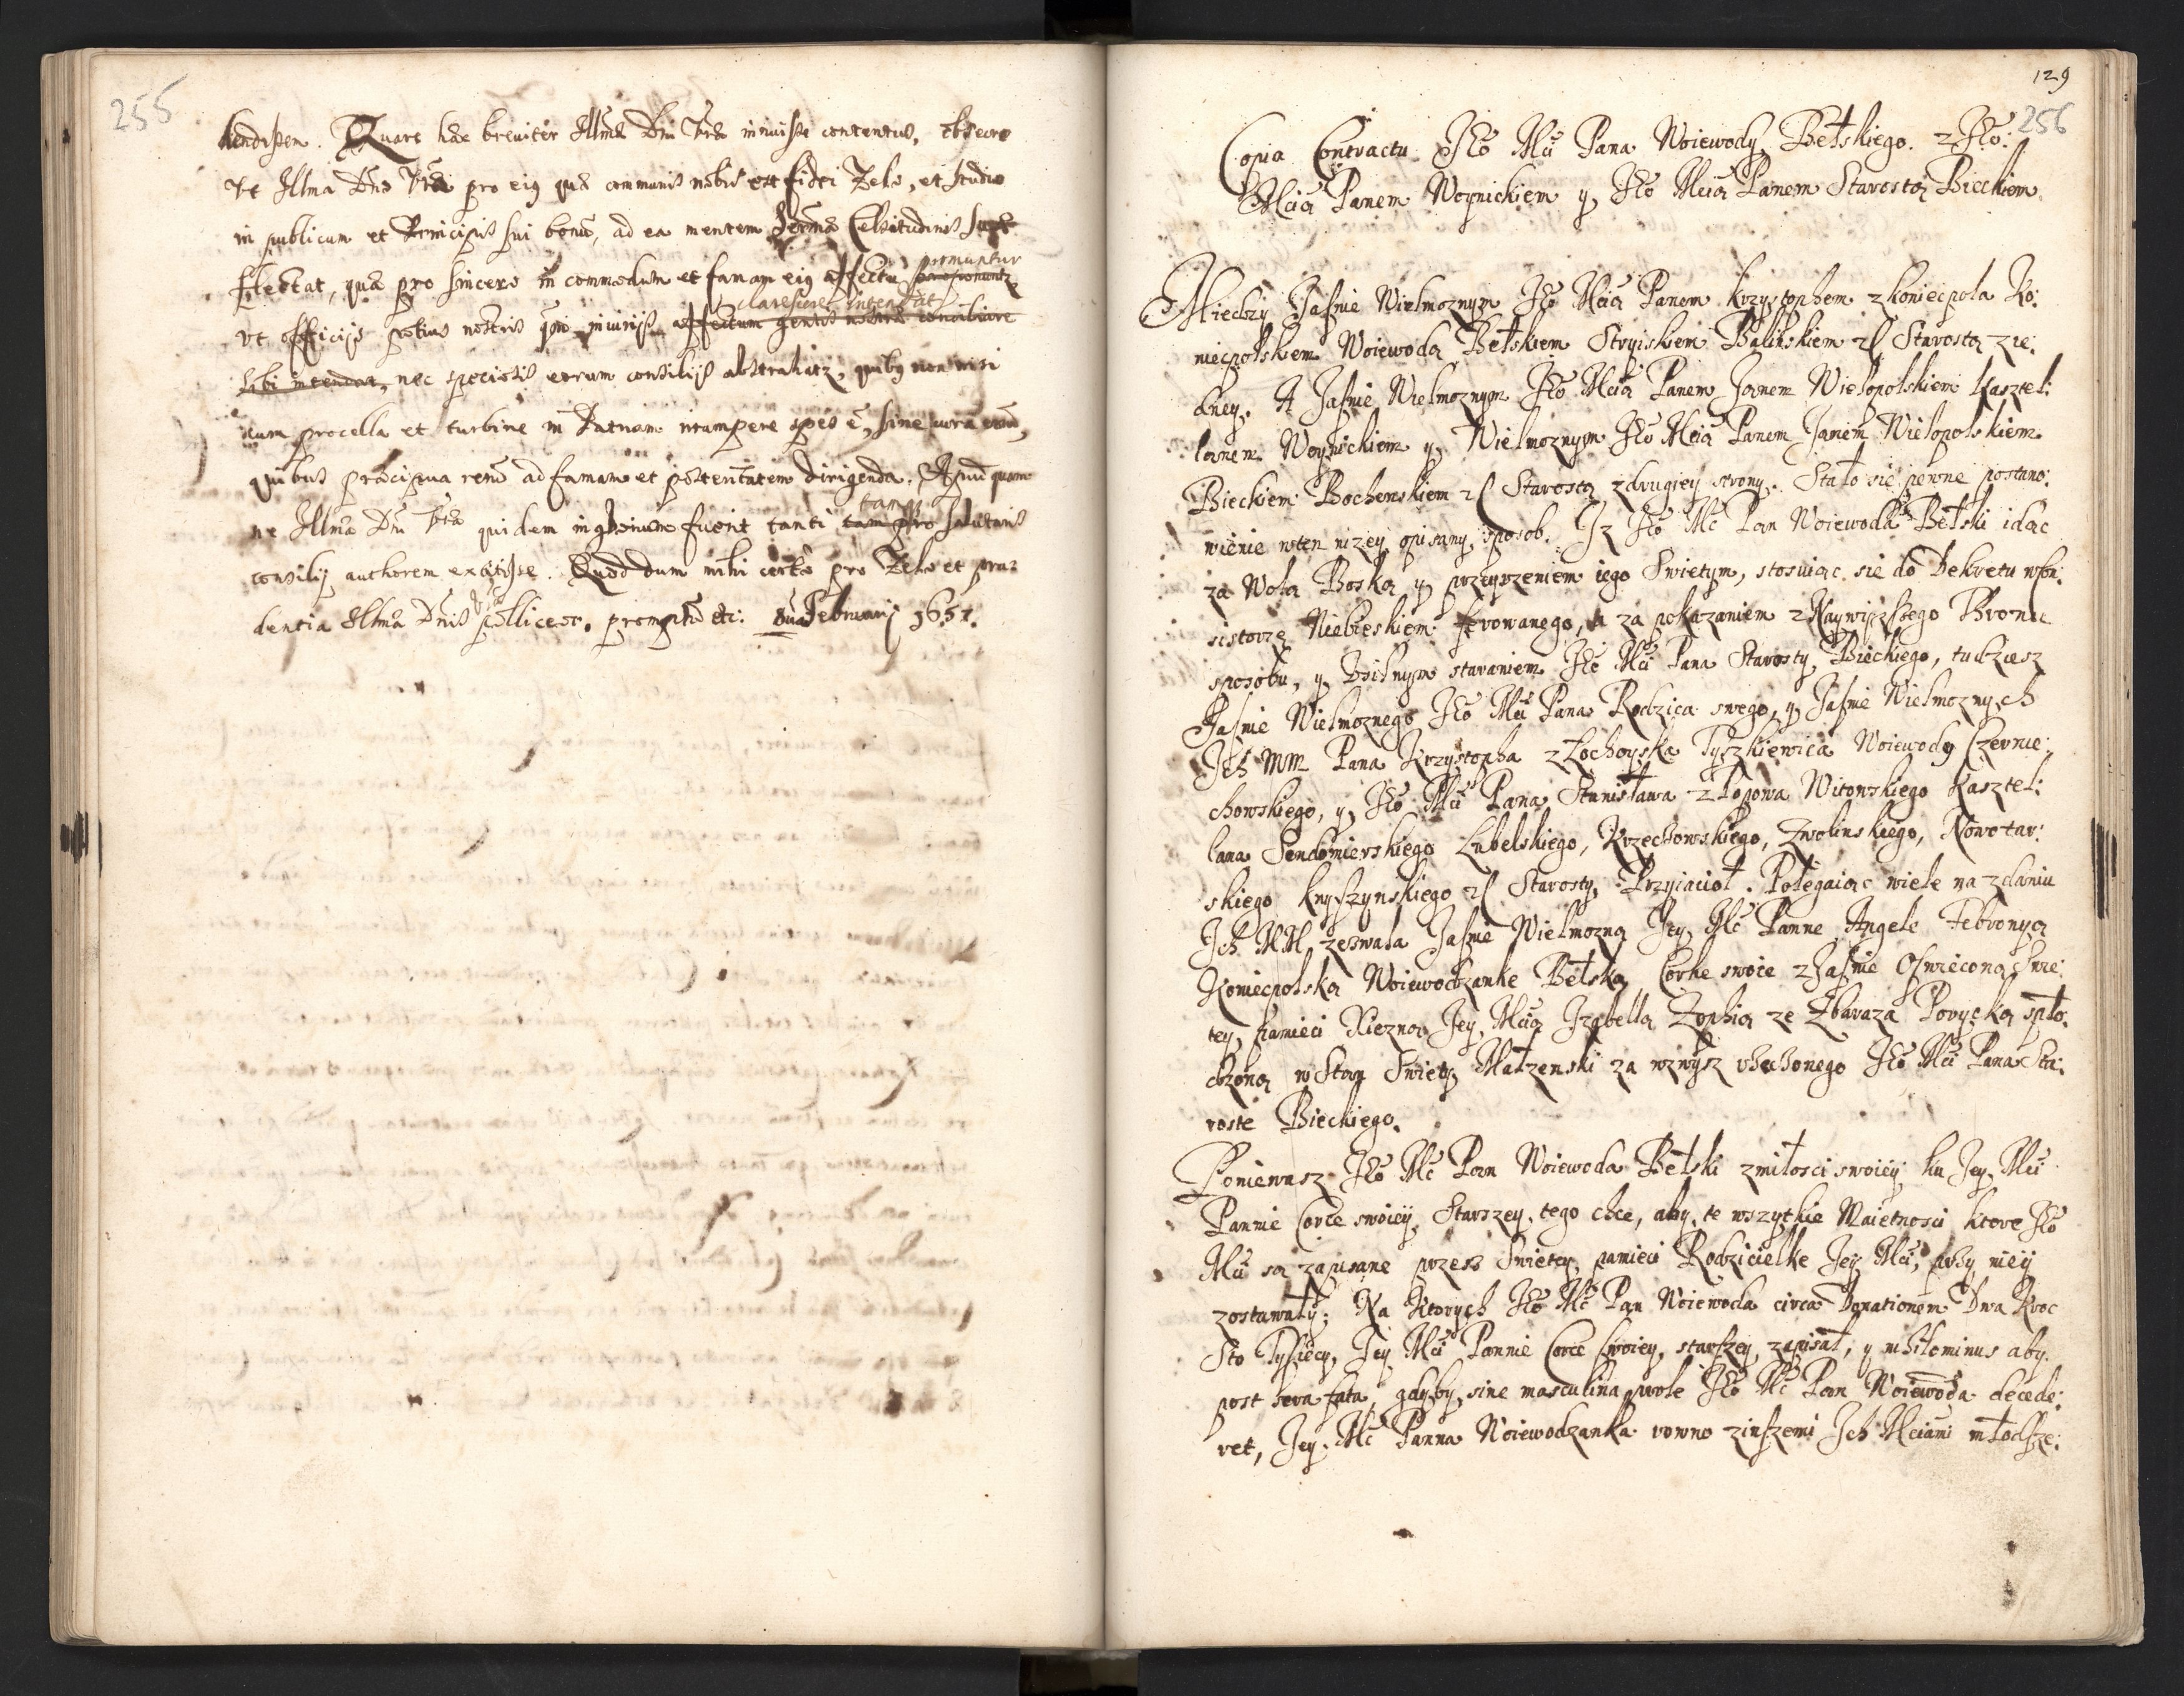 255
hendissem. Quare hac breuiter Illmae Dni Vrae innuisse contentus, obsecro
Vt Illma Dno Vra pro eius quae communis nobis est fidei Zelo, et studio
in publicum et Principis sui bonu, ad ea mentem Sermae Celsitudinis suae
promuntur
flectat, quae pro sincero in commodum et famam eius affectu proponuntr
clarescere intendat
vt officijs potius nostris qm iniurijs affectum gentis nostrae conciliare
sibi intendat, nec speciosis eorum consilijs abstrahatr, quibus non nisi
cum procella et turbine in Patriam irrumpere spes e, sine cura
quibus praecipua reru ad famam et posteritatem dirigenda. Apud quam
tanti
ne Illma Dni Vra quidem fuerit tanti tam pro salutaris
consilij authorem extitisse. Quod dum mihi certo pro Zelo et pru-
dentia Illmae Dnis Vrae polliceor. promptu etc: Februarij 1651.
129
256
Copia Contractu Jego Mci Pana Woiewody Bełskiego. z Jego:
Mcią Panem Woynickiem y Jego Mcią Panem Starostą Bieckiem.
Miedzy Jasnie Wielmoznym Jego Mcią Panem Krzysztophem z Koniecpola Ko:
niecpolskiem Woiewodą Bełskiem Stryiskiem Balinskiem etc Starostą z ie:
dney. A Jasnie Wielmoznym Jego Mcią Panem Janem Wielopolskiem Kasztel:
lanem Woynickiem y Wielmoznym Jego Mcią Panem Janem Wielopolskiem
Bieckiem Bochenskiem etc Starostą z drugiey strony. Stało sie pewne postano:
wienie w ten nizey opisany sposob. Jz Jego Mc Pan Woiewoda Bełski idąc
za Wolą Boską y przeyrzeniem iego Swietym, stosuiąc sie do Dekretu w Con:
sistorzę Niebieskiem ferowanego, a za pokazaniem z Naywyzszego Thronu
sposobu, y Vsilnym staraniem Jego Mci Pana Starosty Bieckiego, tudziesz
Jasnie Wielmoznego Jego Mci Pana Rodzica swego, y Jasnie Wielmoznych
Jch MM Pana Krzysztopha z Łochoyska Tyszkiewica Woiewody Czernie:
chowskiego, y Jego Mci Pana Stanisława z Popowa Witowskiego Kasztel:
lana Sendomierskiego Lubelskiego, Krzeczowskiego, Zwolinskiego, Nowotar:
skiego Knyszynskiego etc Starosty Przyiacioł. Polegaiąc wiele na zdaniu
Jch MM, zezwala Jasnie Wielmozną Jey Mc Panne Angele Febronyą
Koniecpolską Woiewodzanke Bełską, Corke swoie z Jasnie Oswieconą Swie:
tey Pamieci Xiezną Jey Mcią Jzabellą Zophią ze Zbaraza Porycką spło:
dzoną w Stan Swiety Małzenski za wzwysz rzeczonego Jego Mci Pana Sta:
roste Bieckiego.
Poniewasz Jego Mc Pan Woiewoda Bełski z miłosci swoiey ku Jey Mci
Pannie Corce swoiey Starszey, tego chce, aby te wszytkie Maietnosci ktore Jego
Mci są zapisane przesz Swietey pamieci Rodzicielke Jey Mci, przy niey
zostawały; Na Ktorych Jego Mc Pan Woiewoda circa Donationem Dwa Kroc
Sto Tysiecy, Jey Mci Pannie Corce swoiey starszey zapisał, y nihilominus aby
post sera fata, gdyby sine masculina prole Jego Mc Pan Woiewoda decede:
ret, Jey Mc Panna Woiewodzanka rowno z inszemi Jch Mciami młodsze: